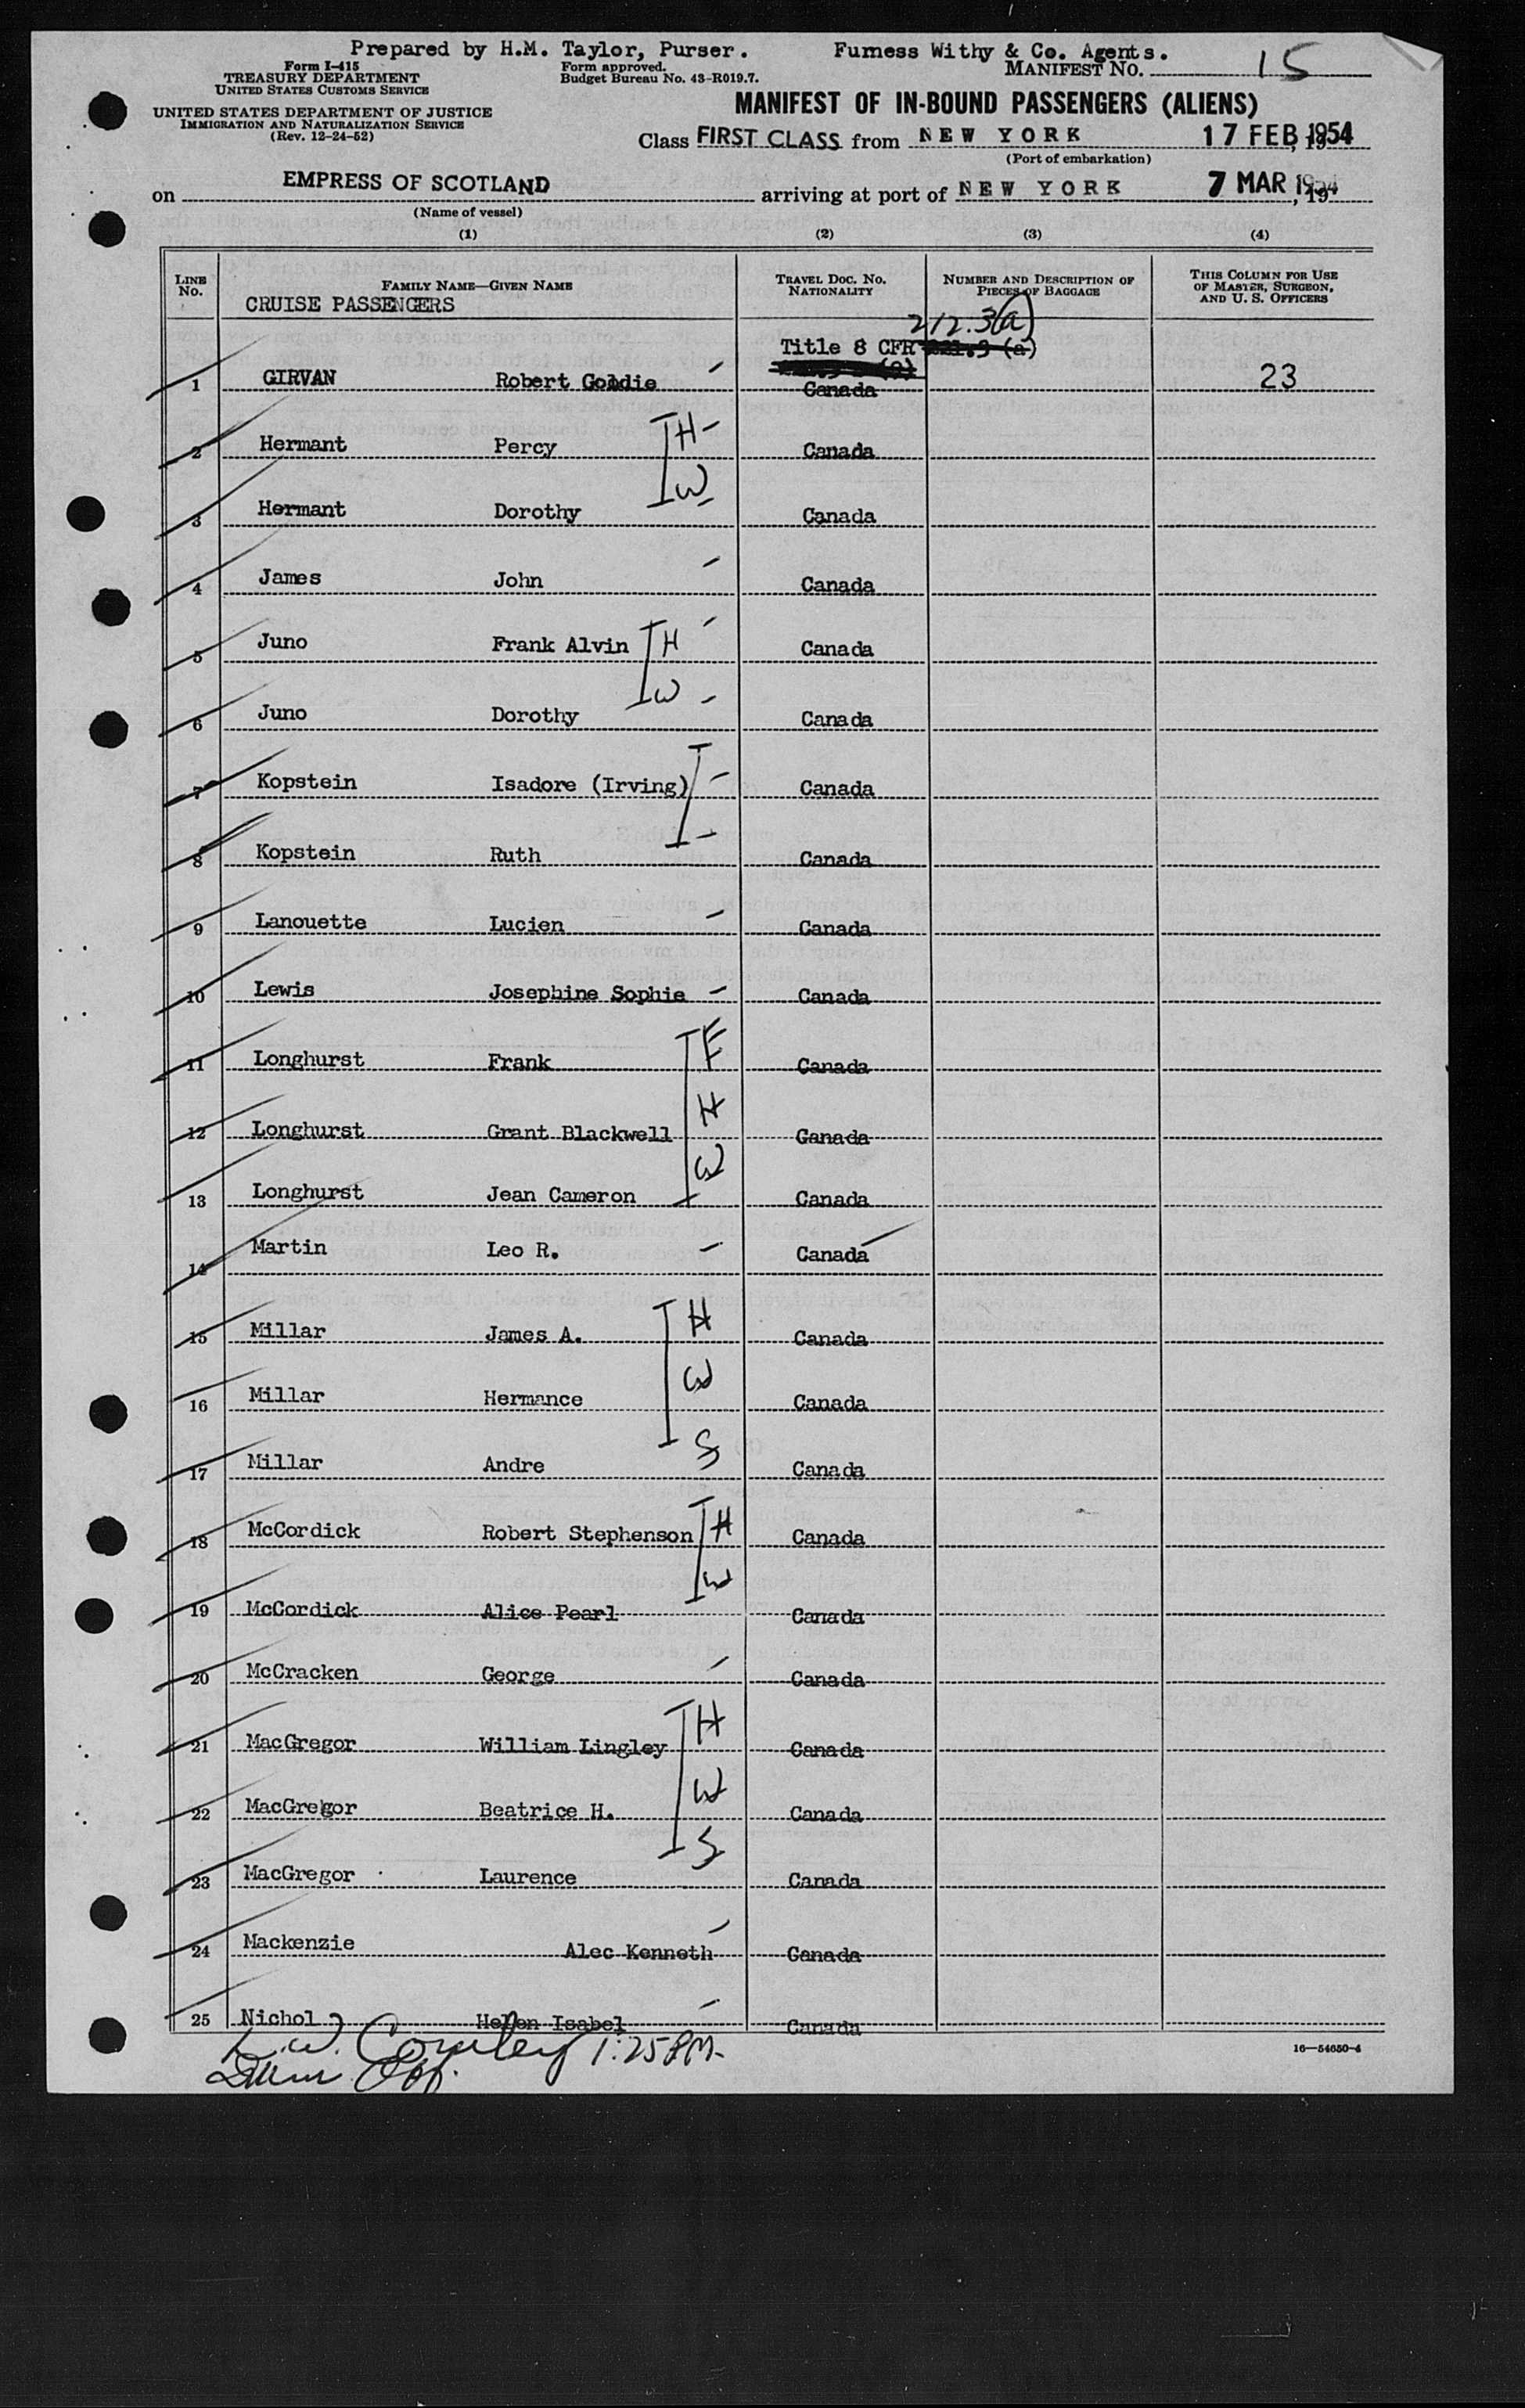 Prepared by H.M. Taylor, Purser. Furness Withy & Co. Agents.
Form I-415
TREASURY DEPARTMENT
UNITED STATES CUSTOMS SERVICE
Form approved.
Budget Bureau No. 43-R019.7.
MANIFEST NO. 15
UNITED STATES DEPARTMENT OF JUSTICE
IMMIGRATION AND NATURALIZATION SERVICE
(Rev. 12-24-52)
MANIFEST OF IN-BOUND PASSENGERS (ALIENS)
Class FIRST CLASS from NEW YORK 17 FEB, 1954
(Port of embarkation)
on EMPRESS OF SCOTLAND arriving at port of NEW YORK 7 MAR 1954, 19
(Name of vessel)
(1) (2) (3) (4)
LINE NO. FAMILY NAME—GIVEN NAME TRAVEL DOC. NO. NATIONALITY NUMBER AND DESCRIPTION OF PIECES OF BAGGAGE THIS COLUMN FOR USE OF MASTER, SURGEON, AND U. S. OFFICERS
CRUISE PASSENGERS
212.3(a)
Title 8 CFR
1 GIRVAN Robert Goldie Canada 23
2 Hermant Percy H Canada
3 Hermant Dorothy W Canada
4 James John Canada
5 Juno Frank Alvin H Canada
6 Juno Dorothy W Canada
7 Kopstein Isadore (Irving) Canada
8 Kopstein Ruth Canada
9 Lanouette Lucien Canada
10 Lewis Josephine Sophie Canada
11 Longhurst Frank F Canada
12 Longhurst Grant Blackwell H Canada
13 Longhurst Jean Cameron W Canada
14 Martin Leo R. Canada
15 Millar James A. H Canada
16 Millar Hermance W Canada
17 Millar Andre S Canada
18 McCordick Robert Stephenson H Canada
19 McCordick Alice Pearl W Canada
20 McCracken George Canada
21 MacGregor William Lingley H Canada
22 MacGregor Beatrice H. W Canada
23 MacGregor Laurence S Canada
24 Mackenzie Alec Kenneth Canada
25 Nichol Helen Isabel Canada
1:25 PM.
16—54650-4